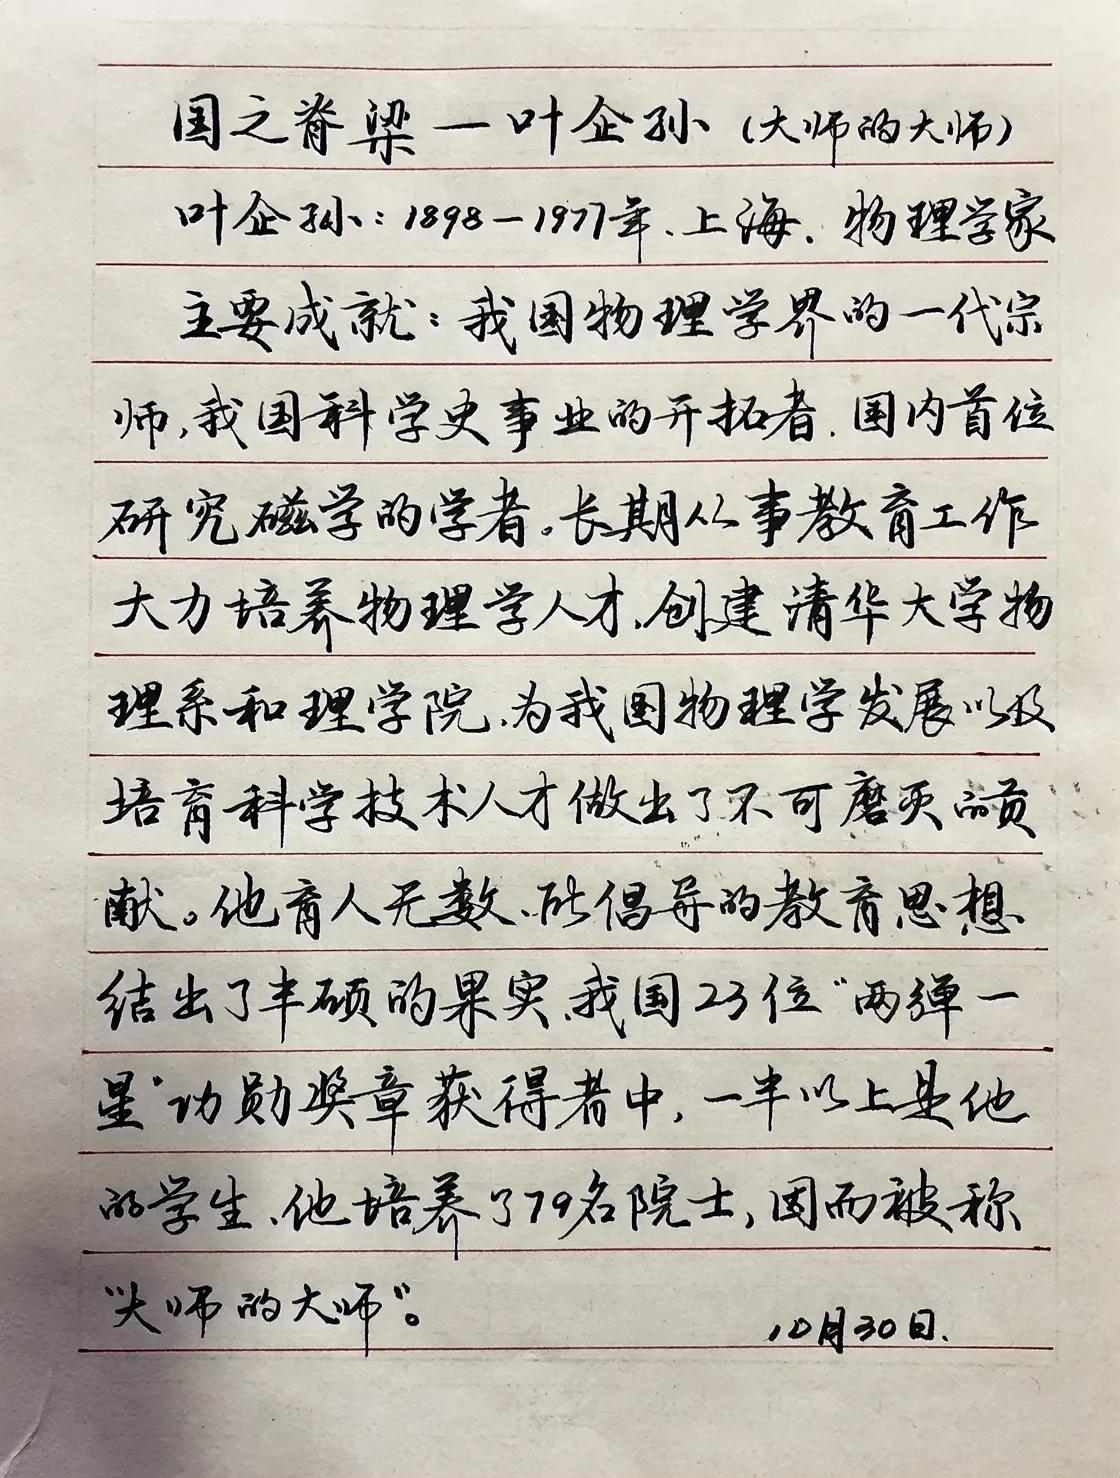 国之脊梁一叶企孙(大师的大师)
叶企孙:1898-1977年、上海、物理学家
主要成就:我国物理学界的一代宗
师,我国科学史事业的开拓者、国内首位
研究磁学的学者。长期从事教育工作
大力培养物理学人才、创建清华大学物
理系和理学院、为我国物理学发展以及
培育科学技术人才做出了不可磨灭的贡
献。他育人无数、所倡导的教育思想
结出了丰硕的果实、我国23位“两弹一
星”功勋奖章获得者中,一半以上是他
的学生、他培养了79名院士,因而被称
“大师的大师”。
10月30日.